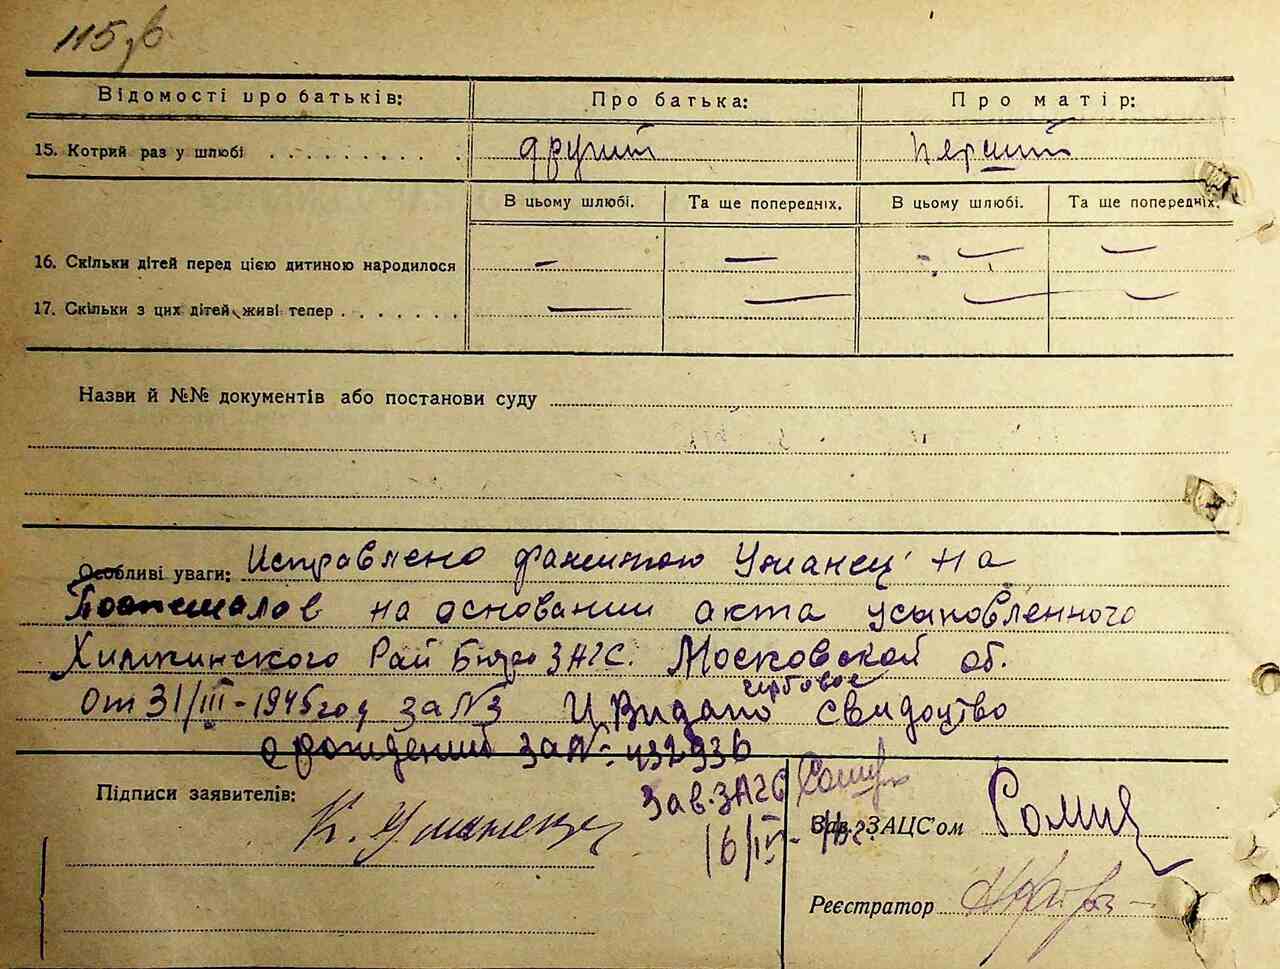 115 зв
Відомості про батьків: Про батька: Про матір:
15. Котрий раз у шлюбі . . . . . . . . . другий перший
В цьому шлюбі. Та ще попередніх. В цьому шлюбі. Та ще попередніх.
16. Скільки дітей перед цією дитиною народилося — — — —
17. Скільки з цих дітей живі тепер . . . . . . . — — — —
Назви й №№ документів або постанови суду
Особливі уваги: Исправлено фамилию Уманец на
на основании акта усыновленного
Химкинского Рай Бюро ЗАГС. Московской об.
от 31/III-1945 год за N3 И Видано гербовое свидоцтво
о рождений за №: 432936
Підписи заявителів: К. Уманец Зав. ЗАГС
16/III- Зав. ЗАЦС'ом
Реєстратор